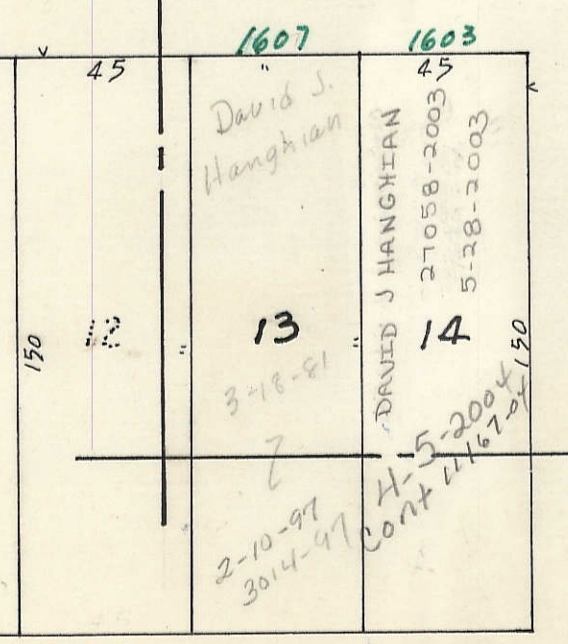 1607
1603
45
"
45
David J.
Hanghian
DAVID J HANGHIAN
27058-2003
5-28-2003
150
12
"
13
"
14
150
3-18-81
2-10-97
3014-97
4-5-2004
Cont 11167-04